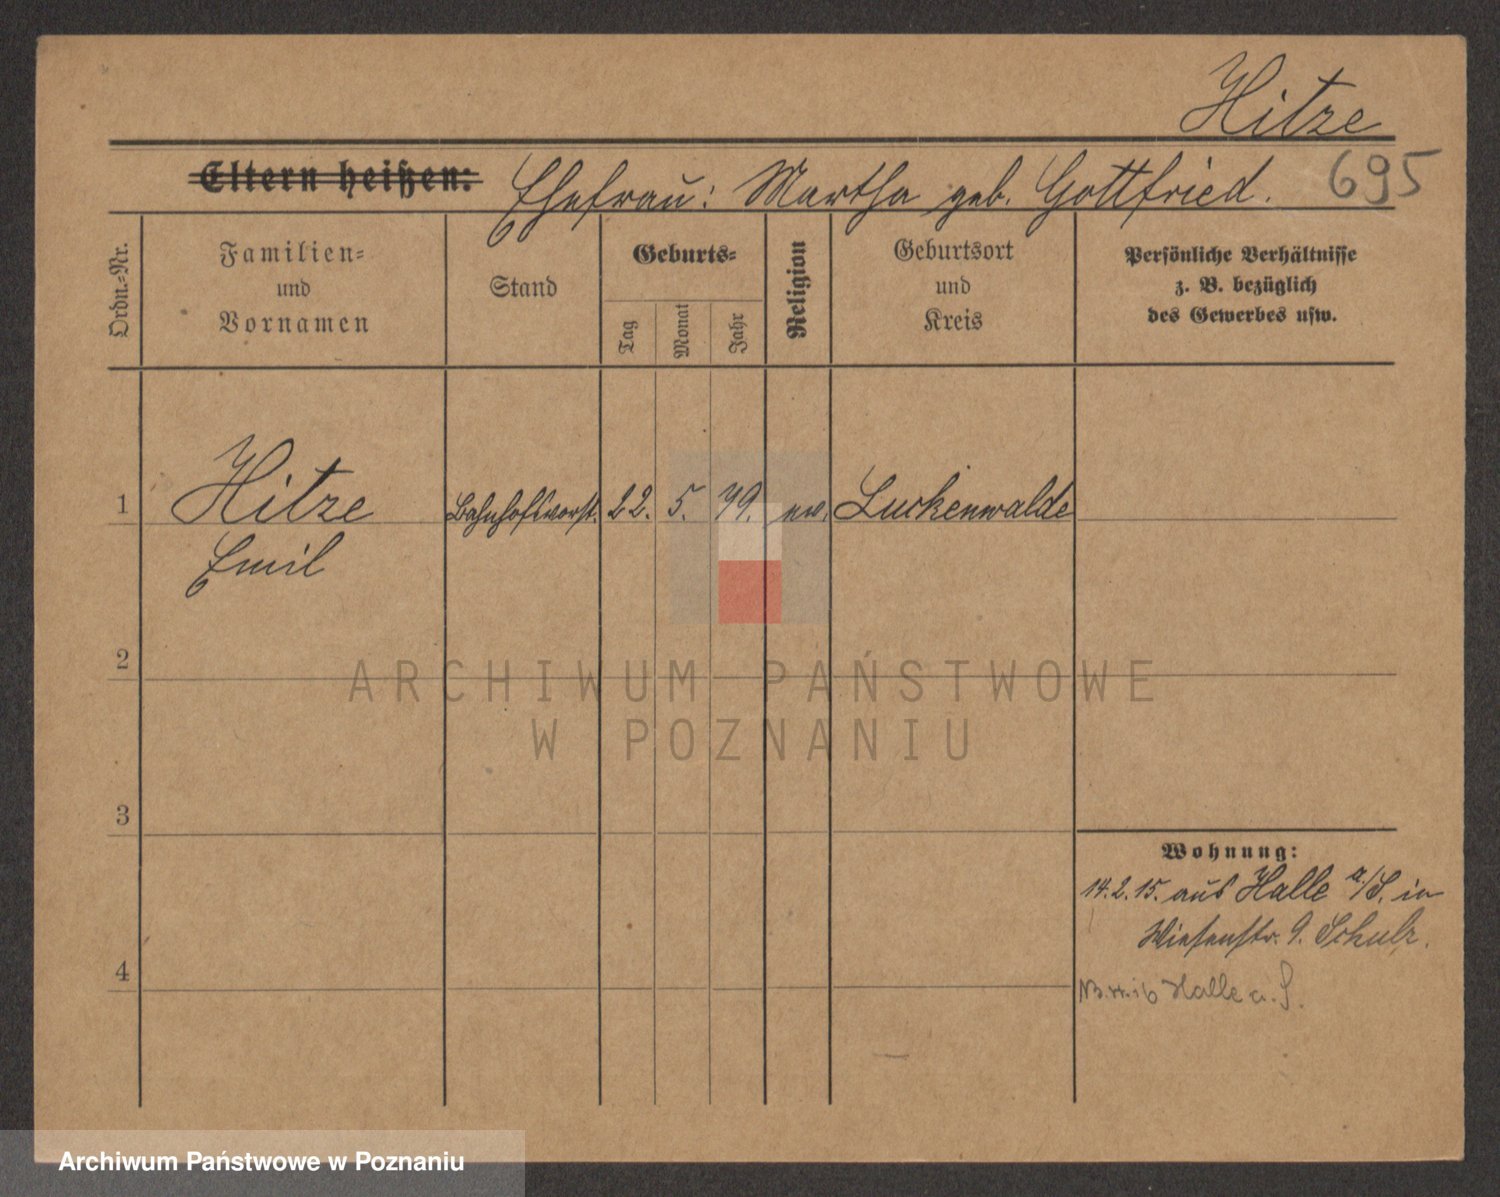 Hitze
Eltern heißen: Ehefrau: Martha geb. Gottfried. 695
Ordn.-Nr.
Familien-
und
Vornamen
Stand
Geburts-
Tag
Monat
Jahr
Religion
Geburtsort
und
Kreis
Persönliche Verhältnisse
z. B. bezüglich
des Gewerbes usw.
1 Hitze Bahnhofsvorst. 22. 5. 79. ev. Luckenwalde
Emil
2
ARCHIWUM PAŃSTWOWE
W POZNANIU
3
Wohnung:
14.2.15. aus Halle a/S. in
Wiesenstr. 9. Schulz.
4
Halle a. S.
Archiwum Państwowe w Poznaniu